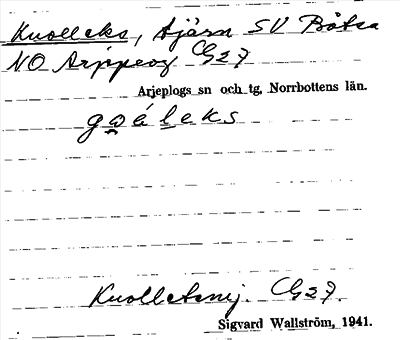 Kuolleks, tjärn SV Båtsa
NO Arjeplog Cg27
Arjeplogs sn och tg, Norrbottens län.
goáleks
Kuolletsmj. Cg27.
Sigvard Wallström, 1941.